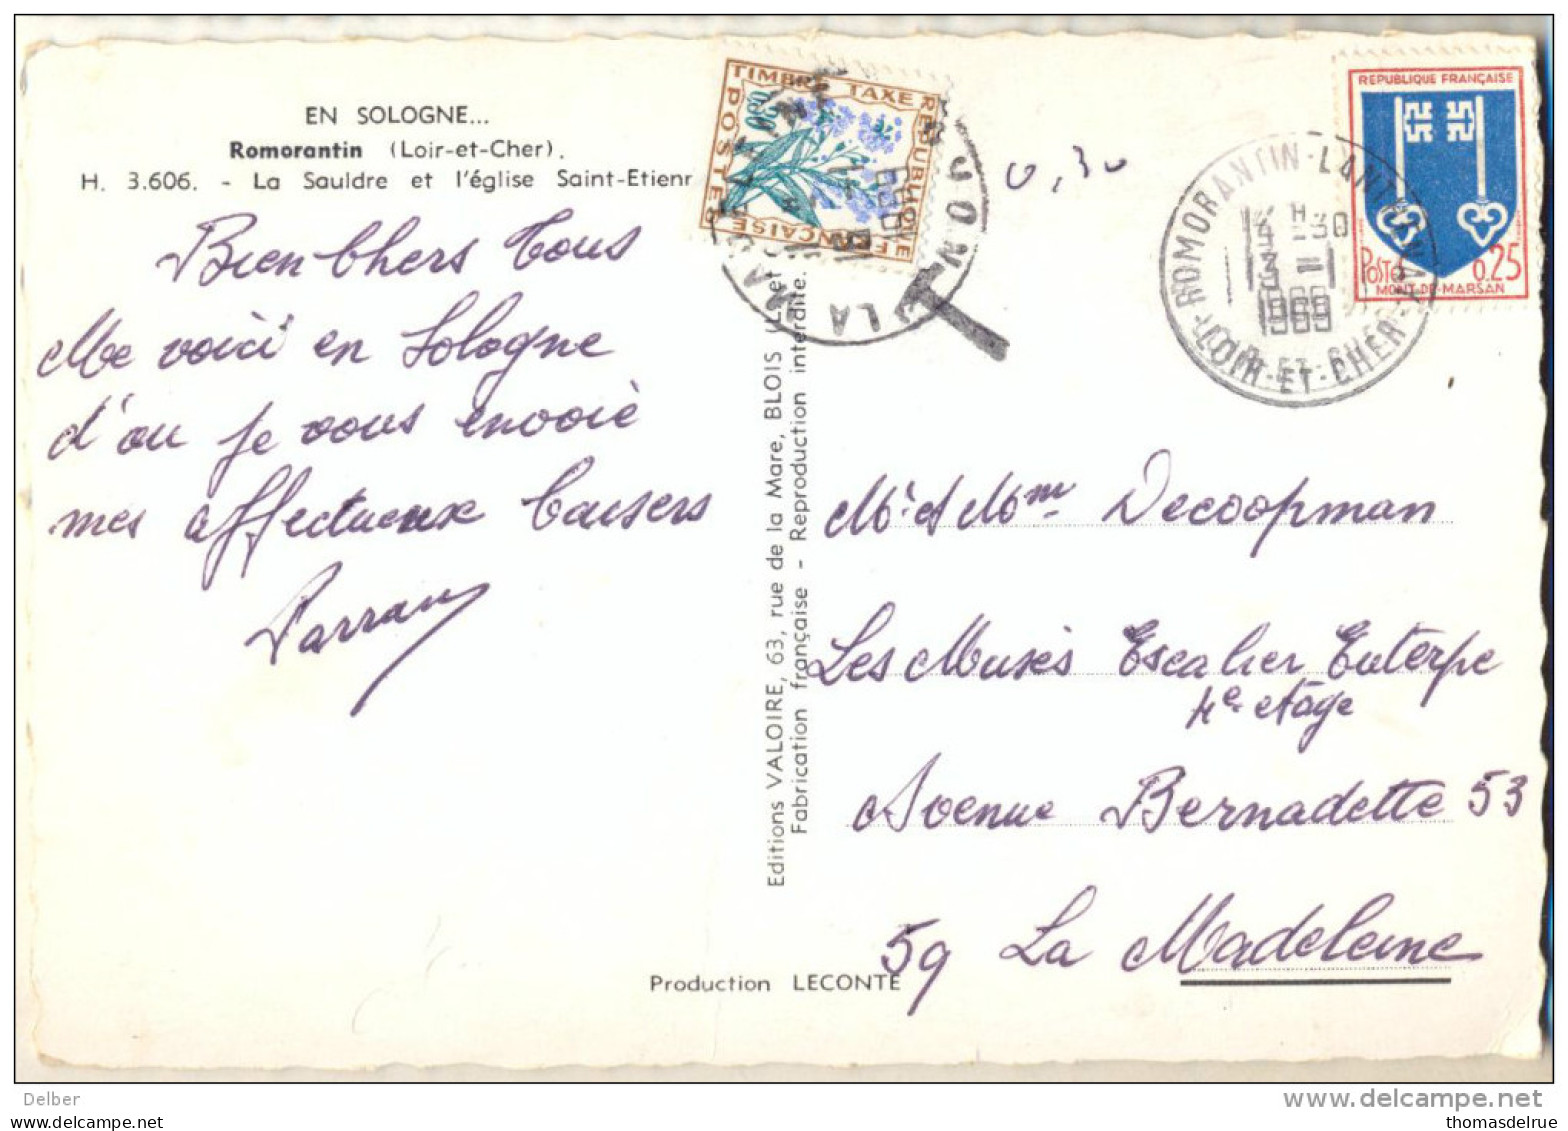 EN SOLOGNE...
Romorantin (Loir-et-Cher).
H. 3.606. - La Sauldre et l'église Saint-Etienr
Bien Chers Tous
Me voici en Sologne
d'ou je vous envoie
mes affectueux baisers
Editions VALOIRE, 63, rue de la Mare, BLOIS (L. et
Fabrication française - Reproduction interdite.
Production LECONTE
TIMBRE TAXE
REPUBLIQUE
FRANÇAISE
POSTES
0,30
ROMORANTIN-LANTHENAY
LOIR-ET-CHER
1969
REPUBLIQUE FRANÇAISE
POSTES 0.25
MONT-DE-MARSAN
Mr et Mme Decoopman
Les Muses Escalier Euterpe
4e etage
Avenue Bernadette 53
59 La Madeleine
Delber
www.delcampe.net
thomasdelrue